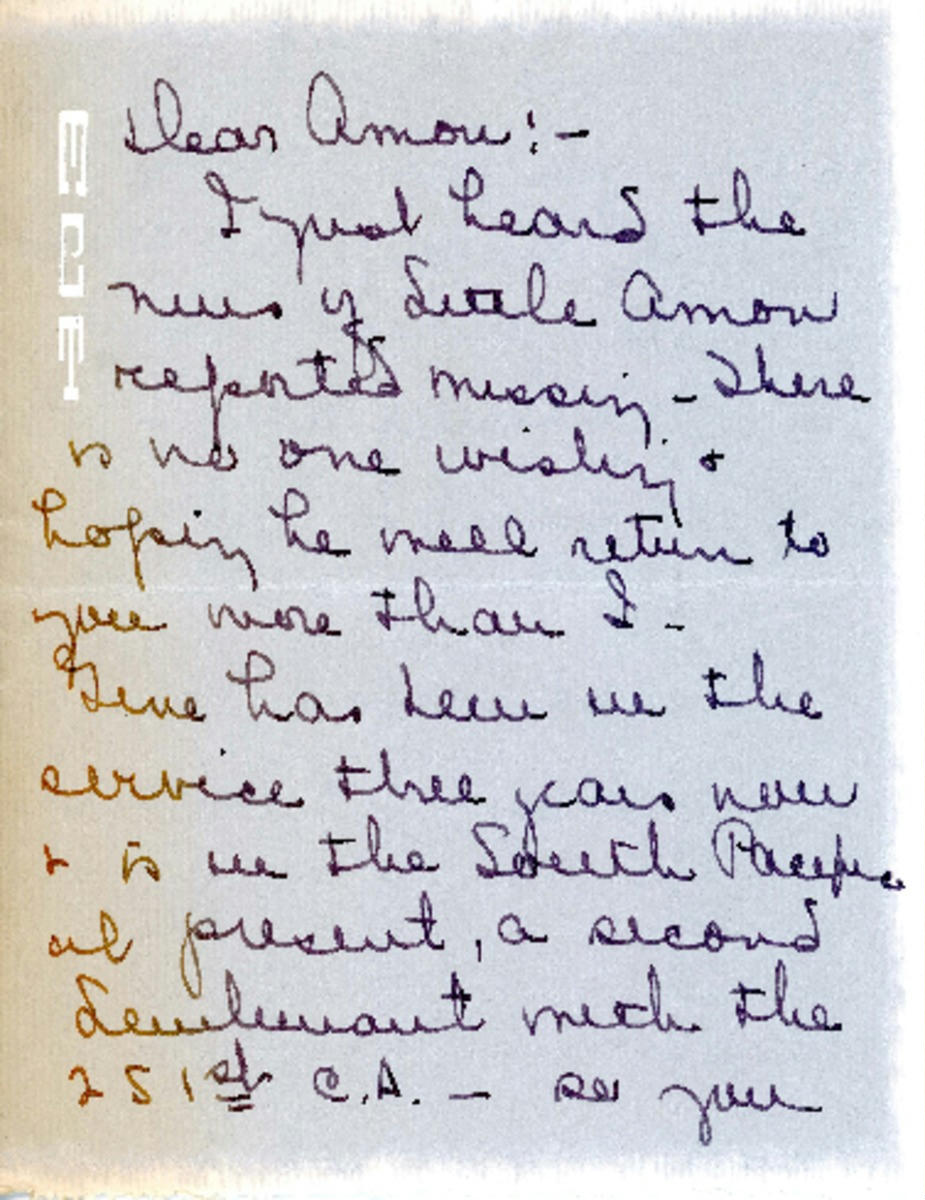 Dear Amon:-
I just heard the
news of Little Amon
reported missing - There
is no one wishing &
hoping he will return to
you more than I -
Gene has been in the
service three years now
& is in the South Pacific
at present, a second
Lieutenant with the
251st C.A. - so you